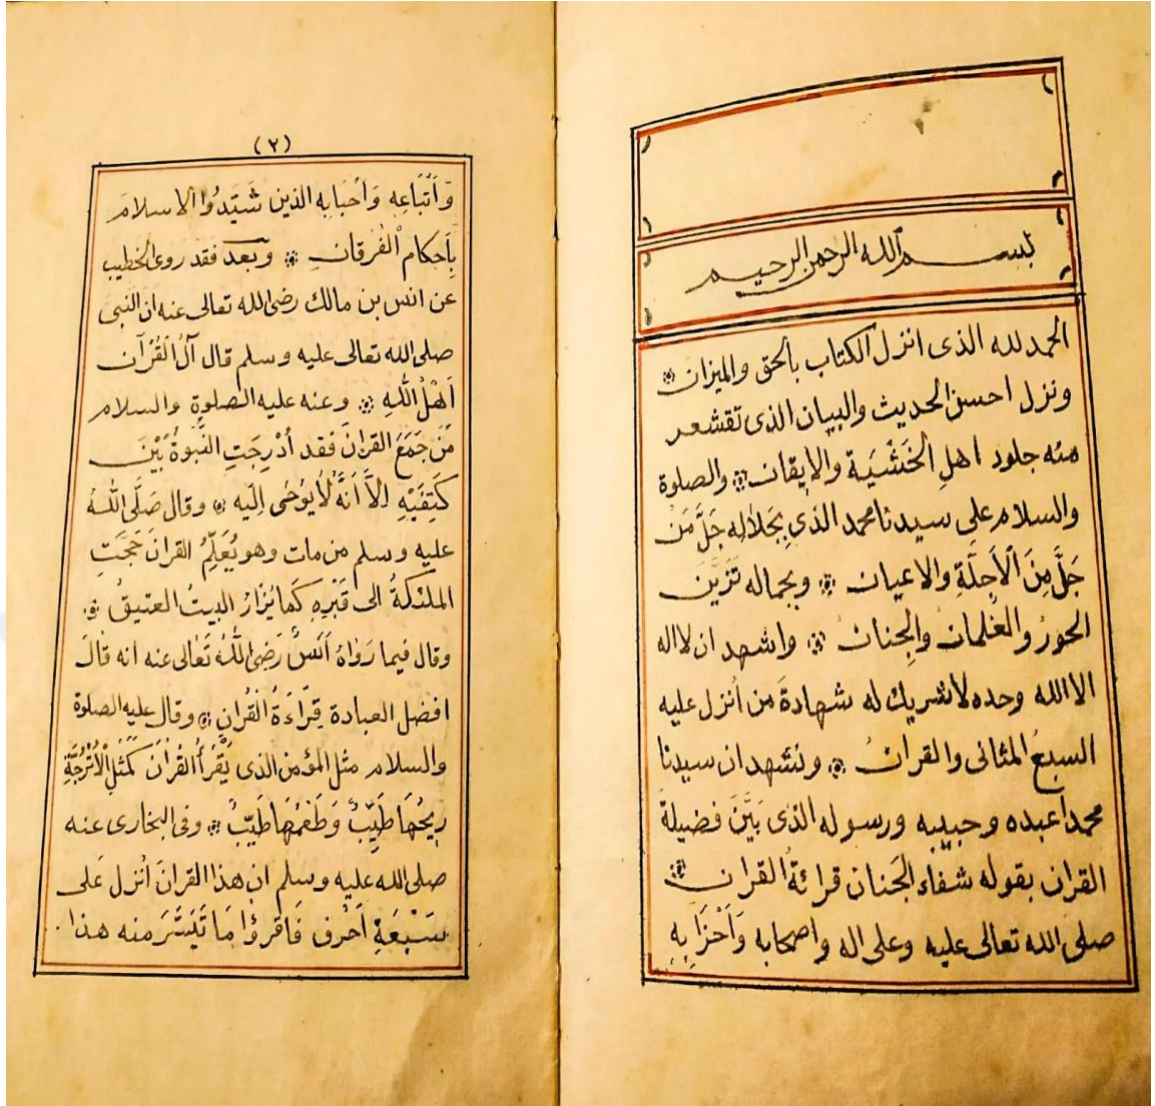 بسم الله الرحمن الرحيم
الحمد لله الذى انزل الكتاب بالحق والميزان
ونزل احسن الحديث والبيان الذى تقشعر
منه جلود اهلِ الخَشْيَة والايقان والصلوة
والسلام على سيدنا محمد الذىِ بِجَلالِه جَلَّ مَنْ
جَلَّ مِنَ الْاَجِلَّةِ والاعيان وبجماله تَزَيَّنَ
الحورُ والغلمان والجِنانُ واشهد ان لا اله
الا الله وحده لا شريك له شهادةَ من اُنزل عليه
السبعُ المثانى والقرانُ ونشهد ان سيدنا
محمدا عبده وحبيبه ورسوله الذى بَيَّنَ فضيلة
القران بقوله شفاء الجَنان قرائةُ القران
صلى الله تعالى عليه وعلى اله واصحابه وَاَحْزَابِهِ
(٢)
وَاَتْبَاعِه وَاَحبَابِه الذين شَيَّدُوا الاسلامَ
بِاَحكام الفُرقانِ وبعد فقد روى الخطيب
عن انس بن مالك رضى الله تعالى عنه ان النبى
صلى الله تعالى عليه وسلم قال آلُ القُرْآن
اَهْلُ اللّٰهِ وعنه عليه الصلوة والسلام
مَنْ جَمَعَ القرانَ فقد اُدْرِجَتِ النبوةُ بَيْنَ
كَتِفَيْهِ اِلَّا اَنَّهُ لَا يُوحٰى اِليه وقال صَلَّى اللّٰهُ
عليه وسلم من مات وهو يُعَلِّمُ القرانَ حَجَّتِ
الملئكةُ الى قَبْرِهِ كَمَا يُزَارُ البيتُ العتيقُ
وقال فيما رَوَاهُ اَنَسٌ رَضِىَ اللّٰهُ تَعَالى عنه انه قال
افضل العبادة قِرَاءَةُ القُرانِ وقال عليه الصلوة
والسلام مثل المؤمن الذى يَقْرَأُ القُرْانَ كَمَثَلِ الْاُتْرُجَّةِ
رِيحُهَا طَيِّبٌ وَطَعْمُهَا طَيِّبٌ وفى البخارى عنه
صلى الله عليه وسلم ان هذا القرانَ اُنزل عَلَى
سَبْعَةِ اَحْرُف فَاقرؤا مَا تَيَسَّرَ منه هذا